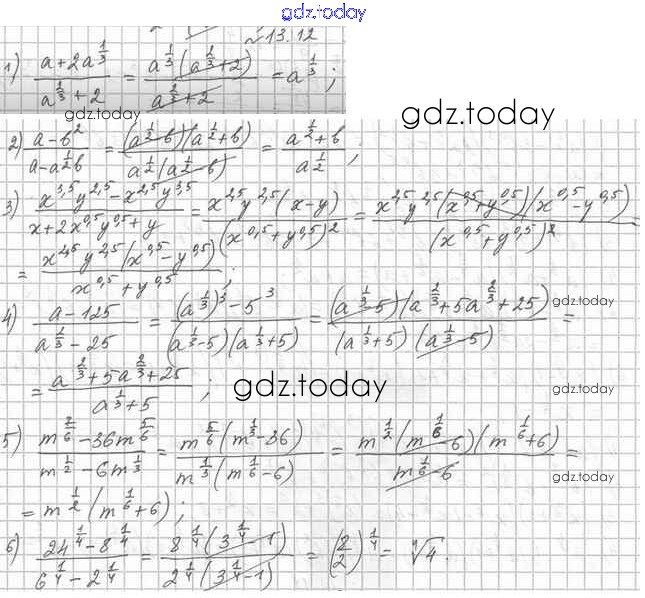 gdz.today
№13.12
1) (a+2a^(1/3))/(a^(2/3)+2) = (a^(1/3)(a^(2/3)+2))/(a^(2/3)+2) = a^(1/3);
gdz.today
gdz.today
2) (a-b^2)/(a-a^(1/2)b) = ((a^(1/2)-b)(a^(1/2)+b))/(a^(1/2)(a^(1/2)-b)) = (a^(1/2)+b)/(a^(1/2));
3) (x^3,5 y^2,5 - x^2,5 y^3,5)/(x+2x^0,5 y^0,5+y) = (x^2,5 y^2,5(x-y))/((x^0,5+y^0,5)^2) = (x^2,5 y^2,5(x^0,5+y^0,5)(x^0,5-y^0,5))/((x^0,5+y^0,5)^2) =
= (x^2,5 y^2,5(x^0,5-y^0,5))/(x^0,5+y^0,5);
gdz.today
4) (a-125)/(a^(2/3)-25) = ((a^(1/3))^3-5^3)/((a^(1/3)-5)(a^(1/3)+5)) = ((a^(1/3)-5)(a^(2/3)+5a^(2/3)+25))/((a^(1/3)+5)(a^(1/3)-5)) =
gdz.today
= (a^(2/3)+5a^(2/3)+25)/(a^(1/3)+5);
gdz.today
gdz.today
5) (m^(7/6)-36m^(5/6))/(m^(1/2)-6m^(1/3)) = (m^(5/6)(m^(1/3)-36))/(m^(1/3)(m^(1/6)-6)) = (m^(1/2)(m^(1/6)-6)(m^(1/6)+6))/(m^(1/6)-6) =
gdz.today
= m^(1/2)(m^(1/6)+6);
6) (24^(1/4)-8^(1/4))/(6^(1/4)-2^(1/4)) = (8^(1/4)(3^(1/4)-1))/(2^(1/4)(3^(1/4)-1)) = (8/2)^(1/4) = ⁴√4.